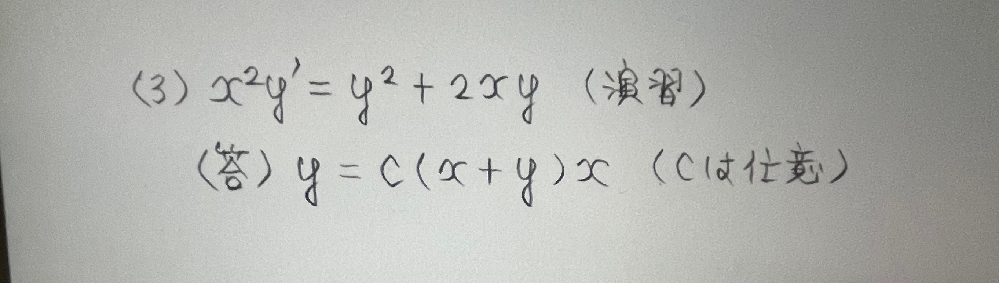 (3) x²y' = y² + 2xy (演習)
(答) y = C(x+y)x (Cは任意)